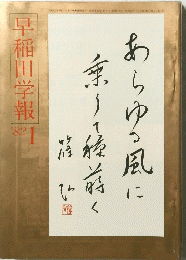 早稲田学報
'82 1
あらゆる風に
乗りて種蒔く